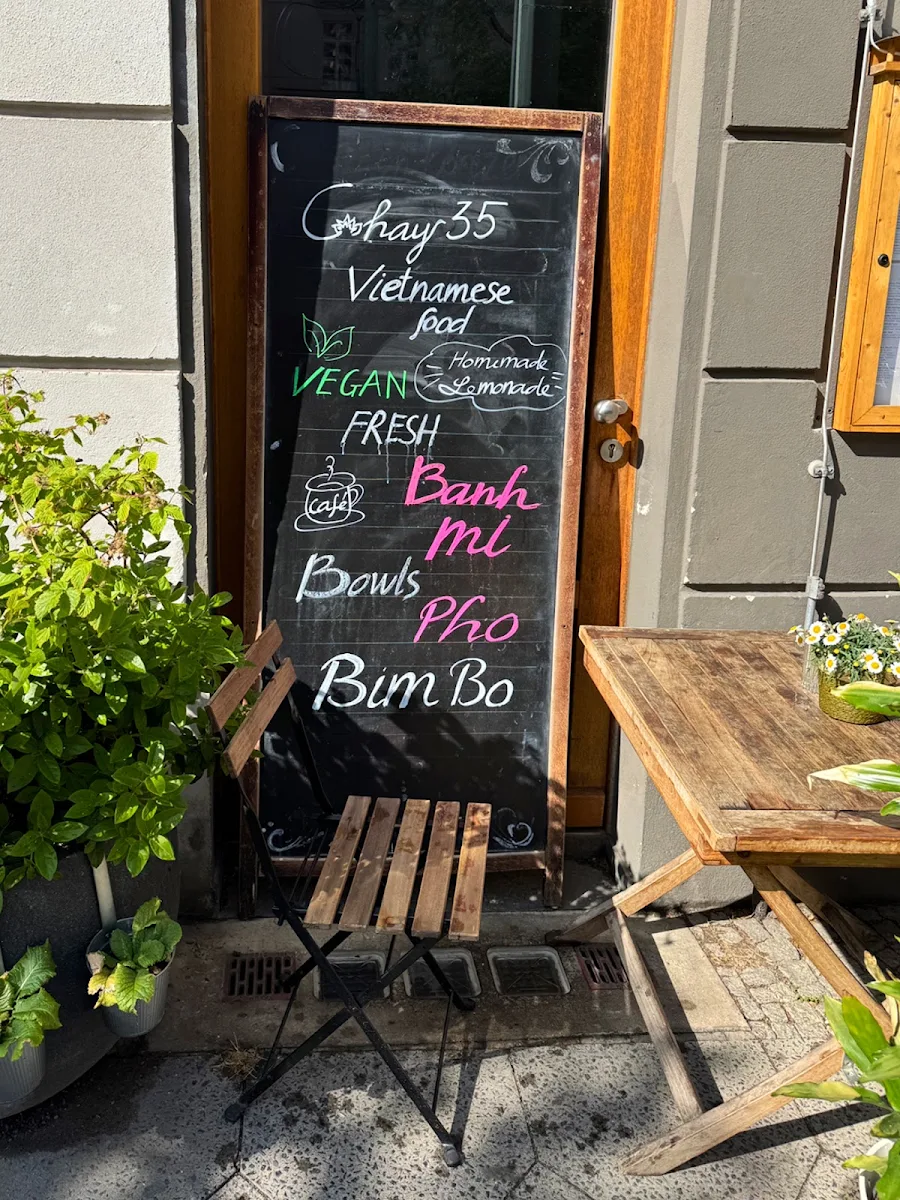 Chay 35
Vietnamese
food
VEGAN
Homemade
Lemonade
FRESH
Café
Banh
mi
Bowls
Pho
Bim Bo